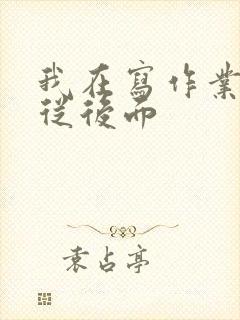 我在寫作業
從後面
袁占亭